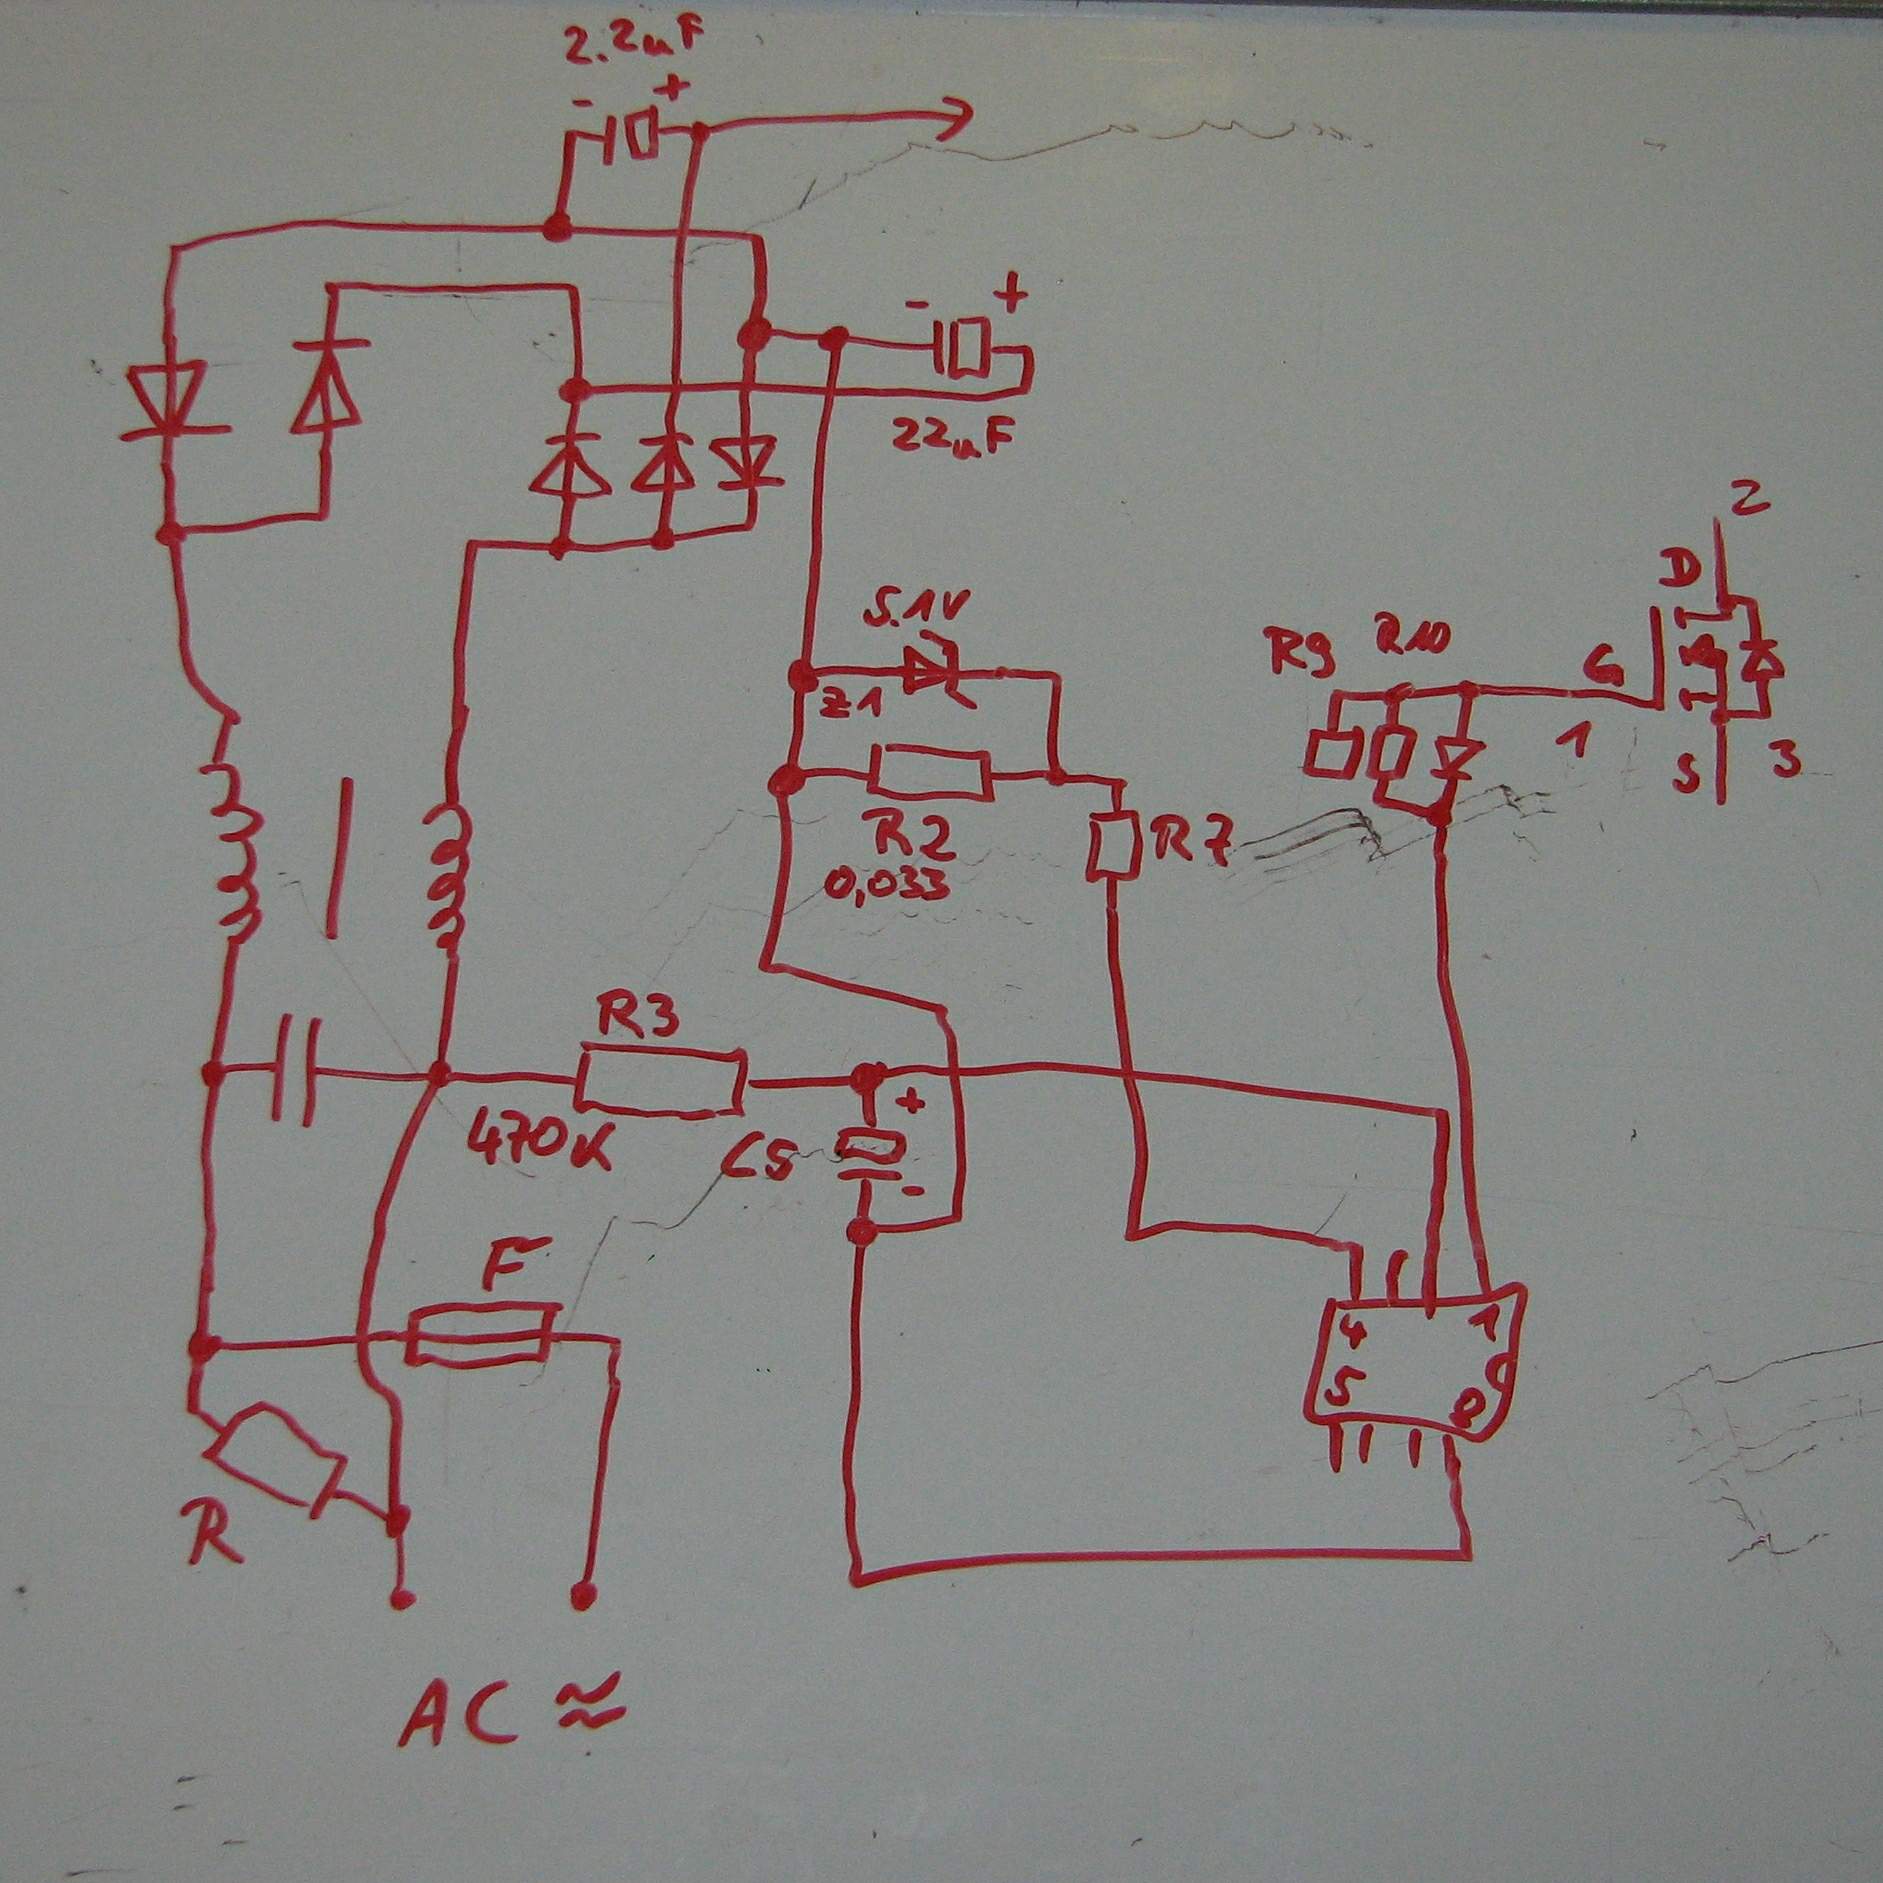 2.2uF
- +
- +
22uF
2
D
5.1V
R9 R10
G
Z1
1
S 3
R2
R7
0,033
R3
+
470K
C5
-
F
4 1
5 8
R
AC ≈